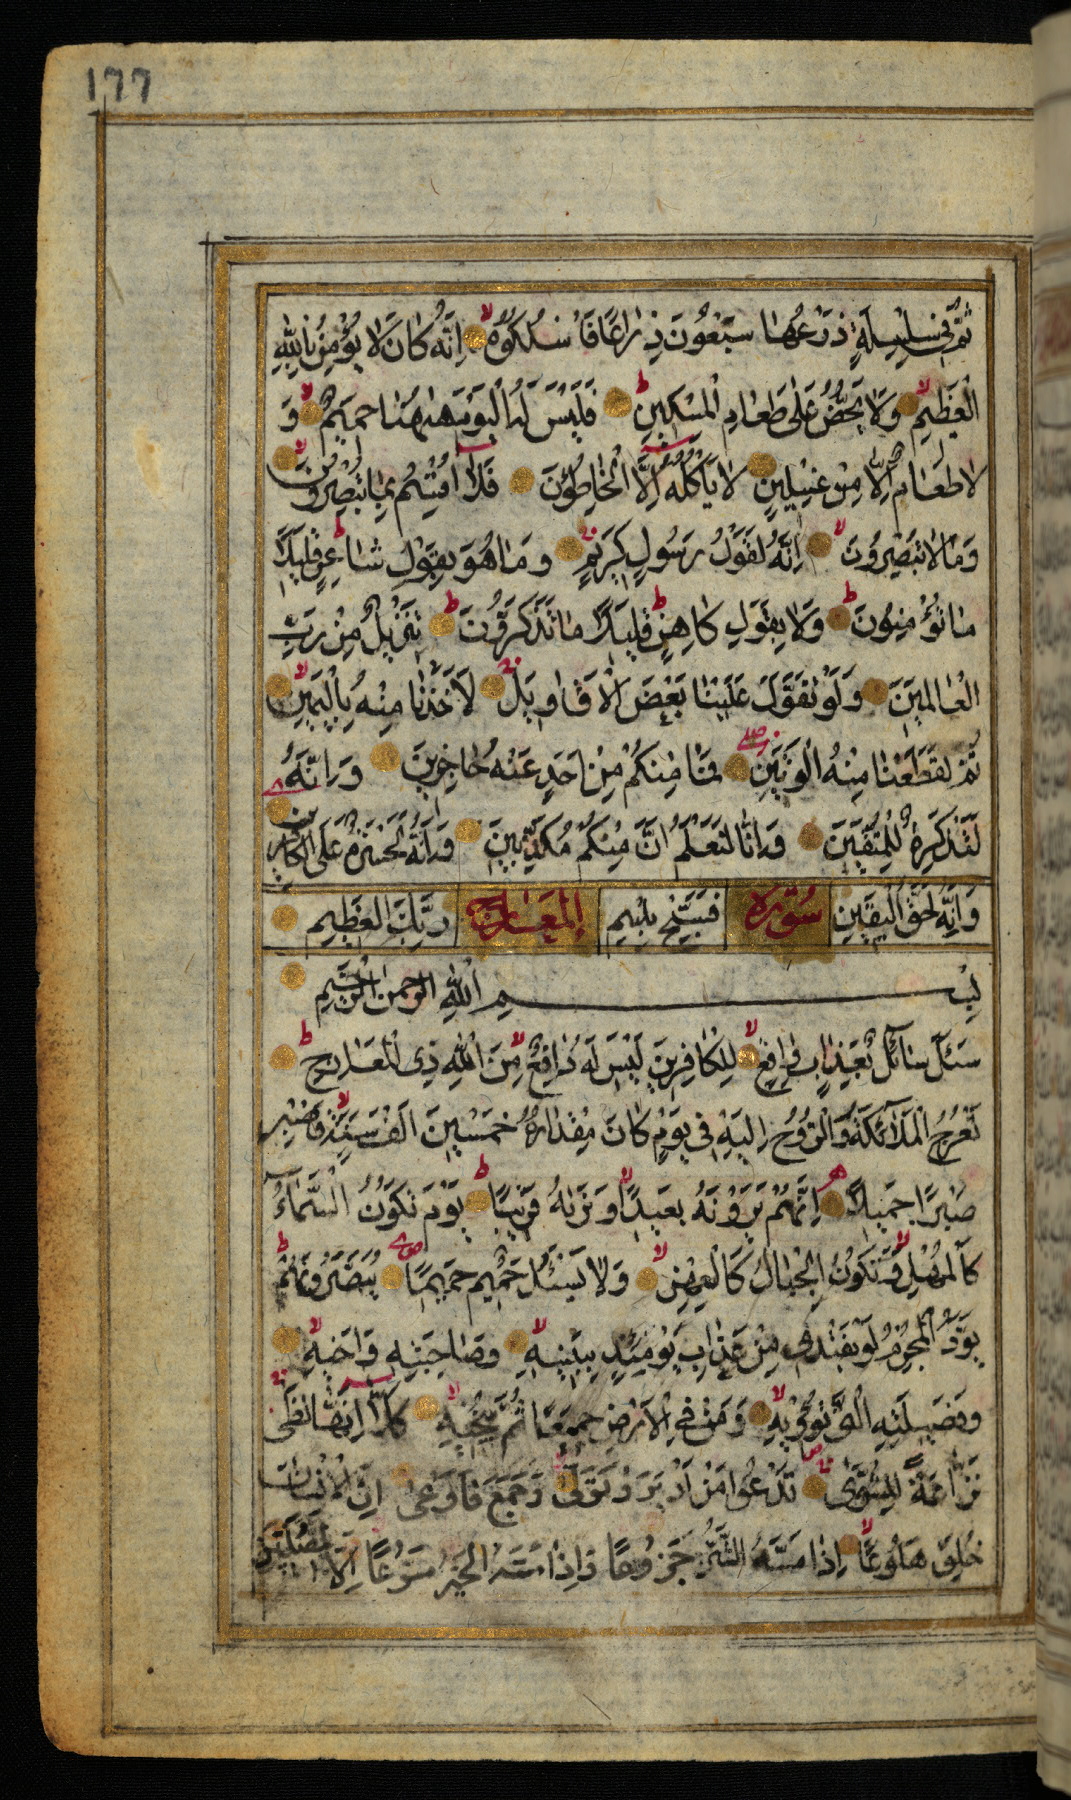 ١٢٢
ثُمَّ فِي سِلْسِلَةٍ ذَرْعُهَا سَبْعُونَ ذِرَاعًا فَاسْلُكُوهُ لا اِنَّهُ كَانَ لَا يُؤْمِنُ بِاللّٰهِ
الْعَظِيمِ لا وَلَا يَحُضُّ عَلَى طَعَامِ الْمِسْكِينِ ط فَلَيْسَ لَهُ الْيَوْمَ هٰهُنَا حَمِيمٌ لا وَ
لَا طَعَامٌ اِلَّا مِنْ غِسْلِينٍ لَا يَأْكُلُهُ اِلَّا الْخَاطِؤُنَ فَلَا اُقْسِمُ بِمَا تُبْصِرُونَ لا
وَمَا لَا تُبْصِرُونَ لا اِنَّهُ لَقَوْلُ رَسُولٍ كَرِيمٍ وَمَا هُوَ بِقَوْلِ شَاعِرٍ ط قَلِيلًا
مَا تُؤْمِنُونَ ط وَلَا بِقَوْلِ كَاهِنٍ ط قَلِيلًا مَا تَذَكَّرُونَ ط تَنْزِيلٌ مِنْ رَبِّ
الْعَالَمِينَ وَلَوْ تَقَوَّلَ عَلَيْنَا بَعْضَ الْاَقَاوِيلِ لا لَاَخَذْنَا مِنْهُ بِالْيَمِينِ لا
ثُمَّ لَقَطَعْنَا مِنْهُ الْوَتِينَ فَمَا مِنْكُمْ مِنْ اَحَدٍ عَنْهُ حَاجِزِينَ وَاِنَّهُ
لَتَذْكِرَةٌ لِلْمُتَّقِينَ وَاِنَّا لَنَعْلَمُ اَنَّ مِنْكُمْ مُكَذِّبِينَ وَاِنَّهُ لَحَسْرَةٌ عَلَى الْكَافِرِينَ
وَاِنَّهُ لَحَقُّ الْيَقِينِ سُورَة فَسَبِّحْ بِاسْمِ الْمَعَارِج رَبِّكَ الْعَظِيمِ
بِسْمِ اللّٰهِ الرَّحْمٰنِ الرَّحِيمِ
سَئَلَ سَائِلٌ بِعَذَابٍ وَاقِعٍ لا لِلْكَافِرِينَ لَيْسَ لَهُ دَافِعٌ لا مِنَ اللّٰهِ ذِي الْمَعَارِجِ ط
تَعْرُجُ الْمَلَائِكَةُ وَالرُّوحُ اِلَيْهِ فِي يَوْمٍ كَانَ مِقْدَارُهُ خَمْسِينَ اَلْفَ سَنَةٍ لا فَاصْبِرْ
صَبْرًا جَمِيلًا اِنَّهُمْ يَرَوْنَهُ بَعِيدًا لا وَنَرٰيهُ قَرِيبًا ط يَوْمَ تَكُونُ السَّمَاءُ
كَالْمُهْلِ لا وَتَكُونُ الْجِبَالُ كَالْعِهْنِ لا وَلَا يَسْئَلُ حَمِيمٌ حَمِيمًا يُبَصَّرُونَهُمْ ط
يَوَدُّ الْمُجْرِمُ لَوْ يَفْتَدِي مِنْ عَذَابِ يَوْمِئِذٍ بِبَنِيهِ لا وَصَاحِبَتِهِ وَاَخِيهِ لا
وَفَصِيلَتِهِ الَّتِي تُؤْوِيهِ لا وَمَنْ فِي الْاَرْضِ جَمِيعًا ثُمَّ يُنْجِيهِ لا كَلَّا اِنَّهَا لَظٰى
نَزَّاعَةً لِلشَّوٰى تَدْعُوا مَنْ اَدْبَرَ وَتَوَلّٰى وَجَمَعَ فَاَوْعٰى اِنَّ الْاِنْسَانَ
خُلِقَ هَلُوعًا لا اِذَا مَسَّهُ الشَّرُّ جَزُوعًا وَاِذَا مَسَّهُ الْخَيْرُ مَنُوعًا اِلَّا الْمُصَلِّينَ